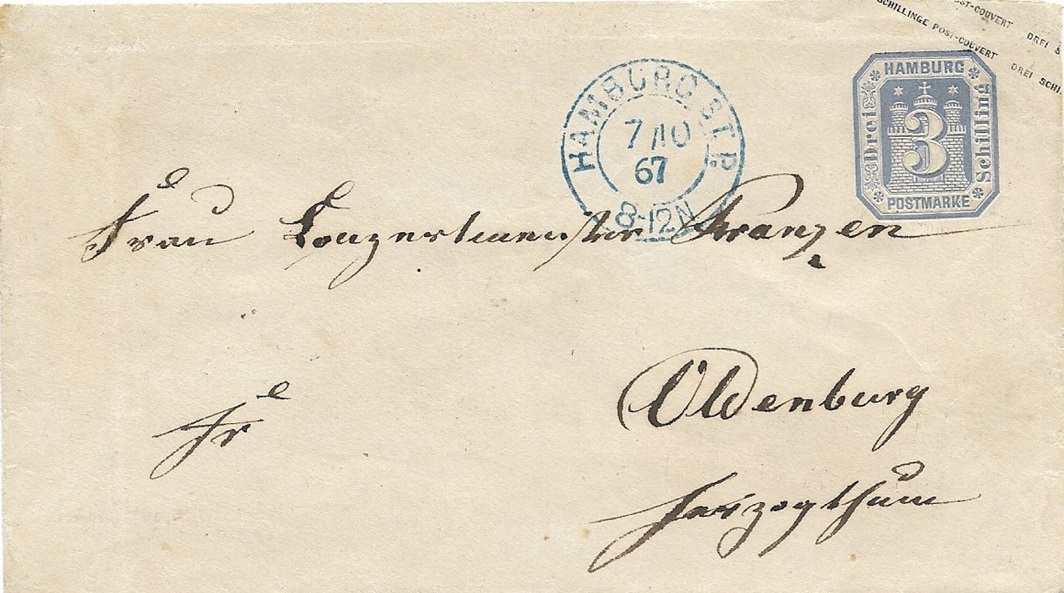 ST-COUVERT DREI S
SCHILLINGE POST-COUVERT DREI SCHI
HAMBURG
Drei
3
Schilling
POSTMARKE
HAMBURG ST.P.
7/10
67
8-12N
Frau Conzertmeister Franzen
Oldenburg
Fr
Herzogthum